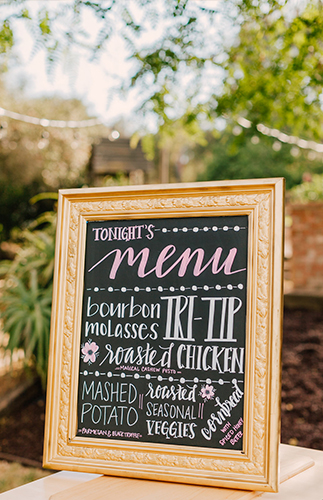 TONIGHT'S
menu
bourbon
molasses
TRI-TIP
roasted CHICKEN
MAGICAL CASHEW PESTO
MASHED
POTATO
PARMESAN &
roasted
SEASONAL
VEGGIES
cornbread
WITH
SPICED HONEY
BUTTER